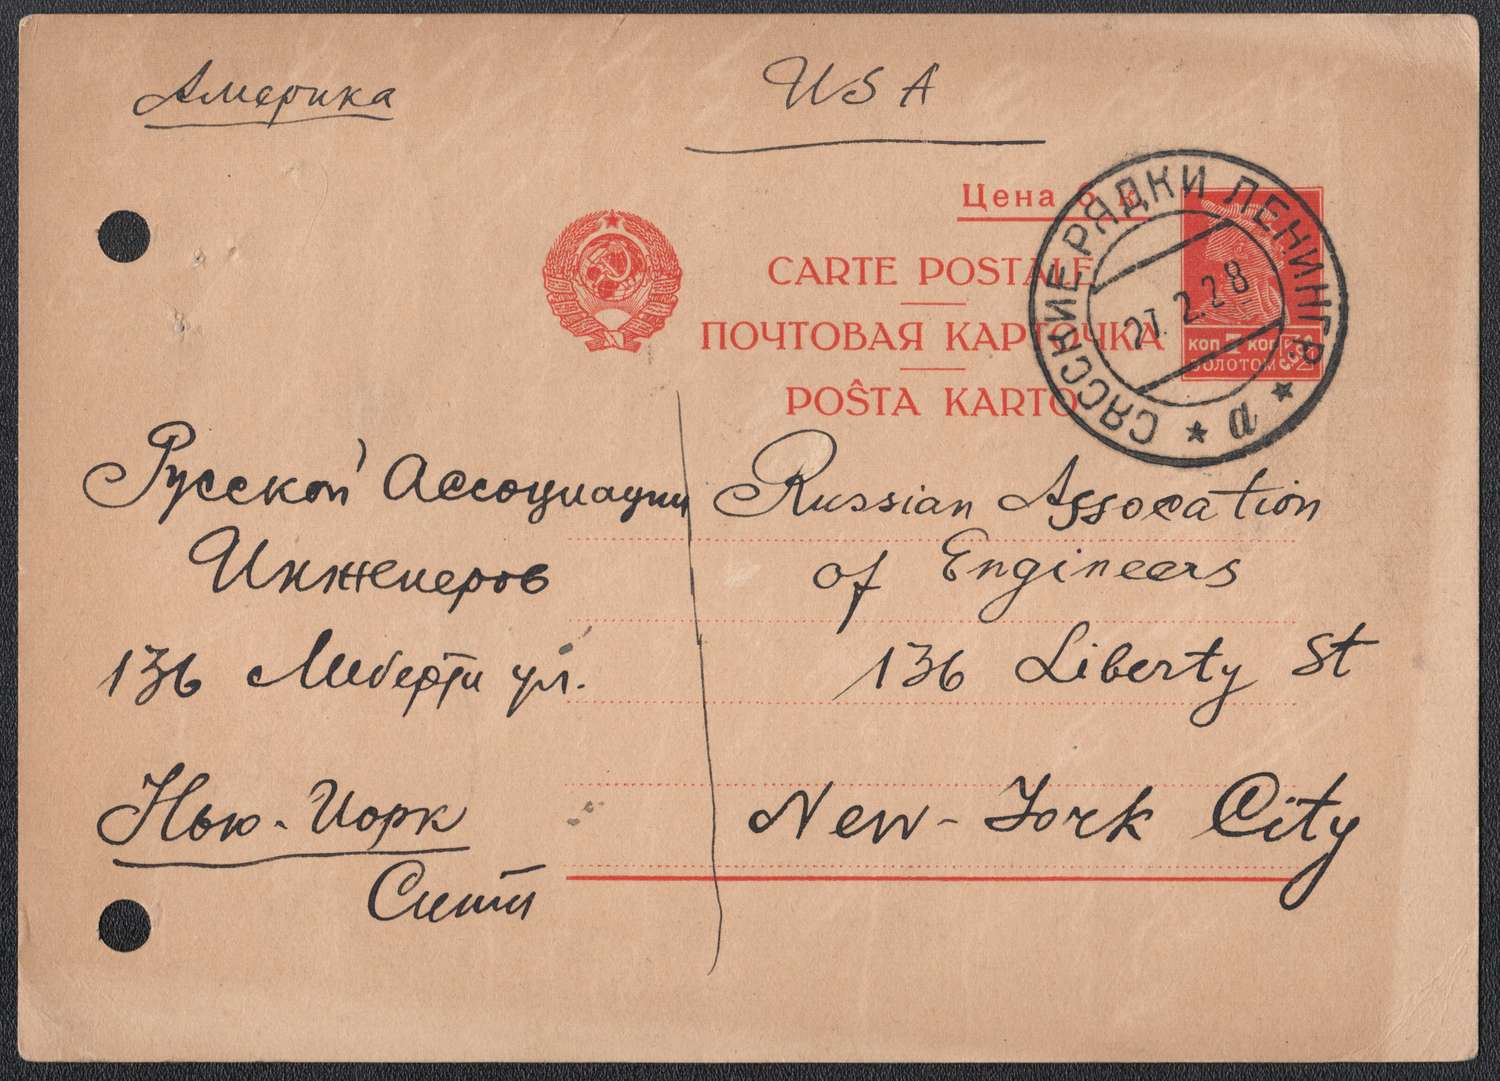 Америка
USA
Цена 8 к.
CARTE POSTALE
ПОЧТОВАЯ КАРТОЧКА
POŜTA KARTO
СЯССКИЕ РЯДКИ ЛЕНИНГР.
27.2.28
а
КОП 7 КОП
ЗОЛОТОМ
Русской Ассоциации
Инженеров
136 Либерти ул.
Нью-Иорк
Сити
Russian Assocation
of Engineers
136 Liberty St
New-York City